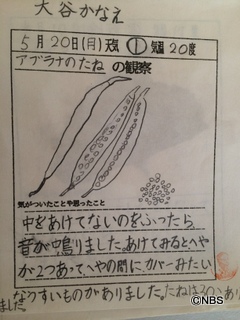 大谷かなえ
5月20日(月)天気 ① 気温20度
アブラナのたね の観察
気がついたことや思ったこと
中をあけてないのをふったら、
音が鳴りました。あけてみるとへや
が2つあってへやの間にカバーみたい
なうすいものがありました。たねは30こあり
ました。
©NBS